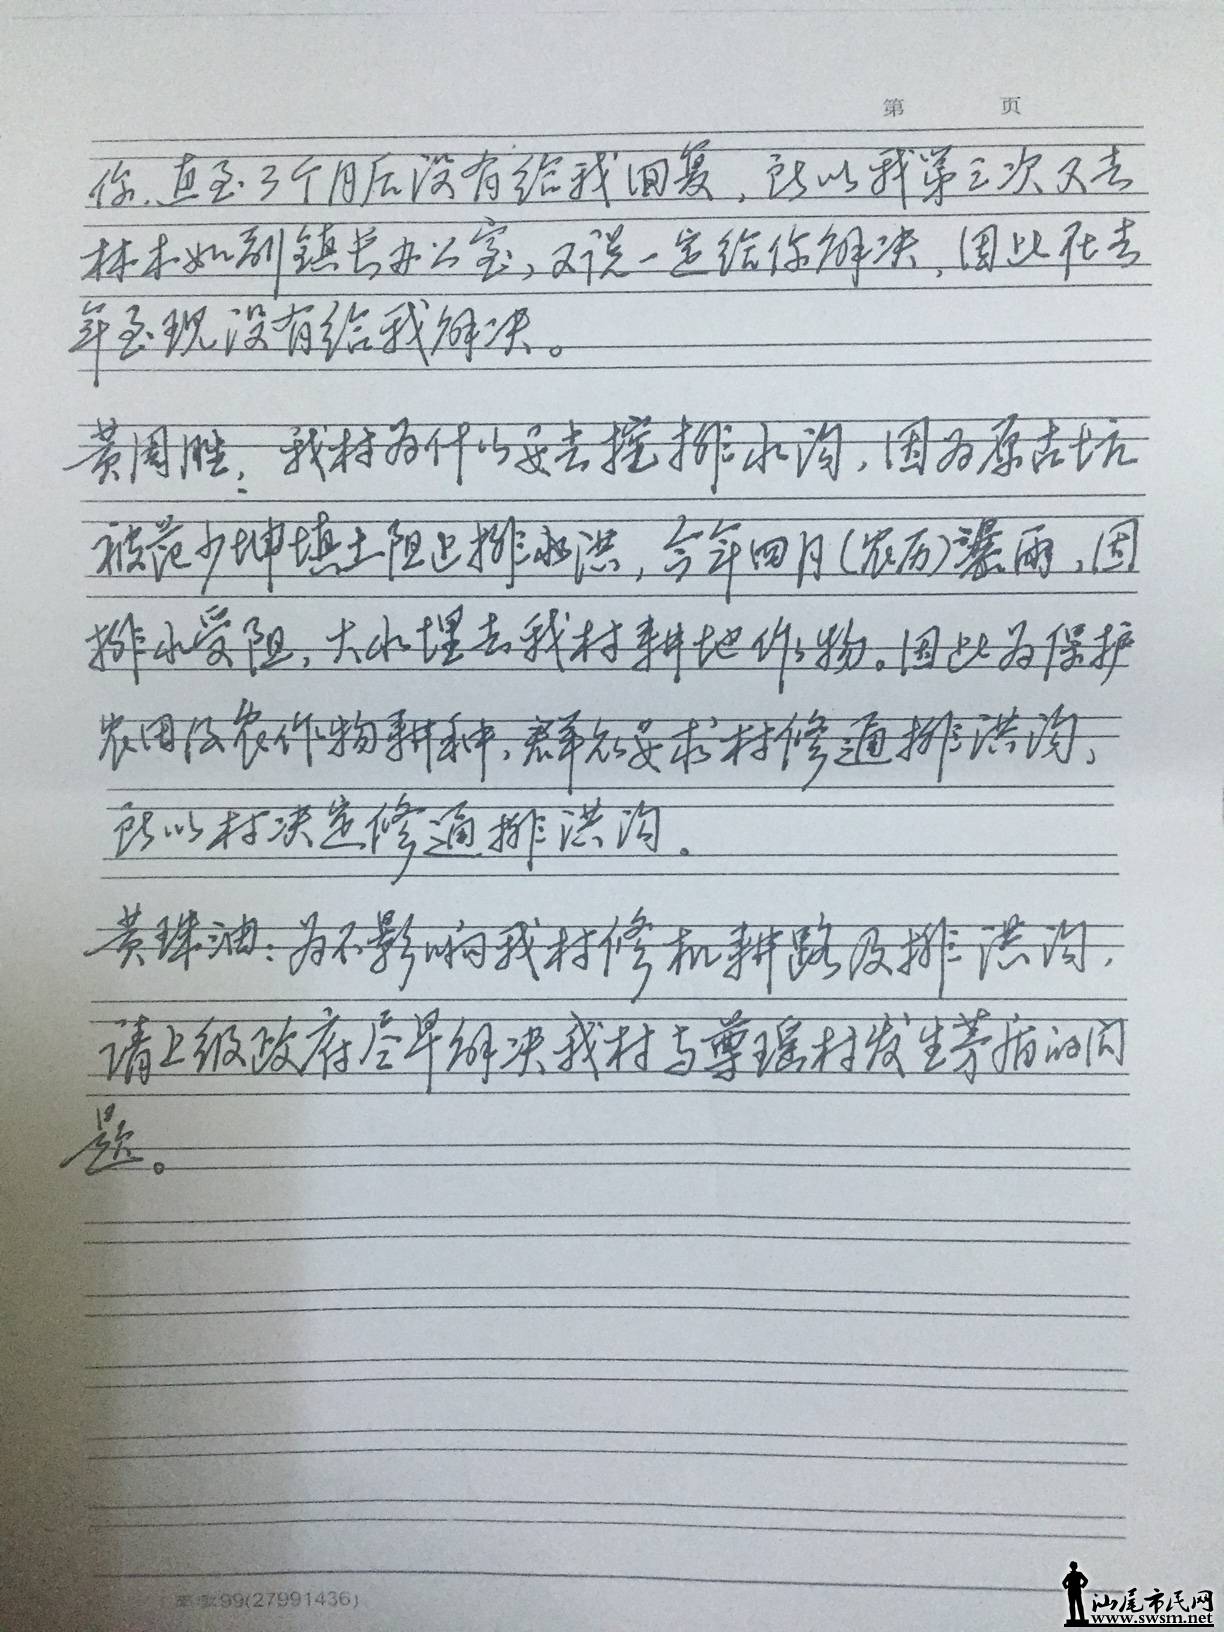 第 页
你.直至3个月后没有给我回复，所以我第三次又去
林木如副镇长办公室，又说一定给你解决，因此在去
年至现没有给我解决。
黄周胜：我村为什么要去挖排水沟，因为原古坑
被范少坤填土阻止排水洪，今年四月(农历)瀑雨，因
排水受阻，大水埋去我村耕地作物。因此为保护
农田及农作物耕种，群众要求村修通排洪沟，
所以村决定修通排洪沟.
黄珠油：为不影响我村修机耕路及排洪沟，
请上级政府尽早解决我村与尊瑶村发生茅盾的问
题。
99(27991436)
汕尾市民网
www.swsm.net